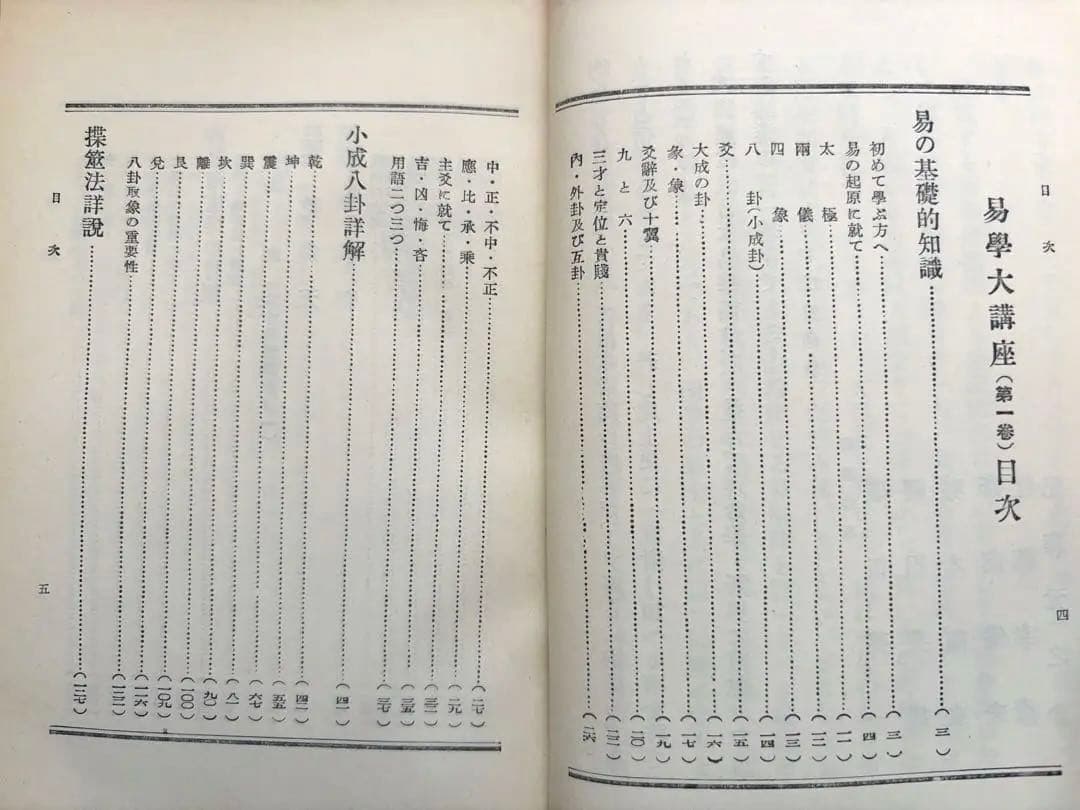 目次
易學大講座（第一卷）目次
易の基礎的知識……（三）
初めて學ぶ方へ……（三）
易の起原に就て……（四）
太極……（一一）
兩儀……（一二）
四象……（一三）
八卦（小成卦）……（一四）
爻……（一五）
大成の卦……（一六）
彖・象……（一七）
爻辭及び十翼……（一九）
九と六……（二〇）
三才と定位と貴賤……（二二）
內・外卦及び互卦……（二六）
四
目次
中・正・不中・不正……（二七）
應・比・承・乘……（二九）
主爻に就て……（三二）
吉・凶・悔・吝……（三五）
用語二つ三つ……（三七）
小成八卦詳解……（四一）
乾……（四二）
坤……（五五）
震……（六七）
巽……（八一）
坎……（九〇）
離……（一〇〇）
艮……（一〇九）
兌……（一一六）
八卦取象の重要性……（一二二）
揲筮法詳說……（一二七）
五